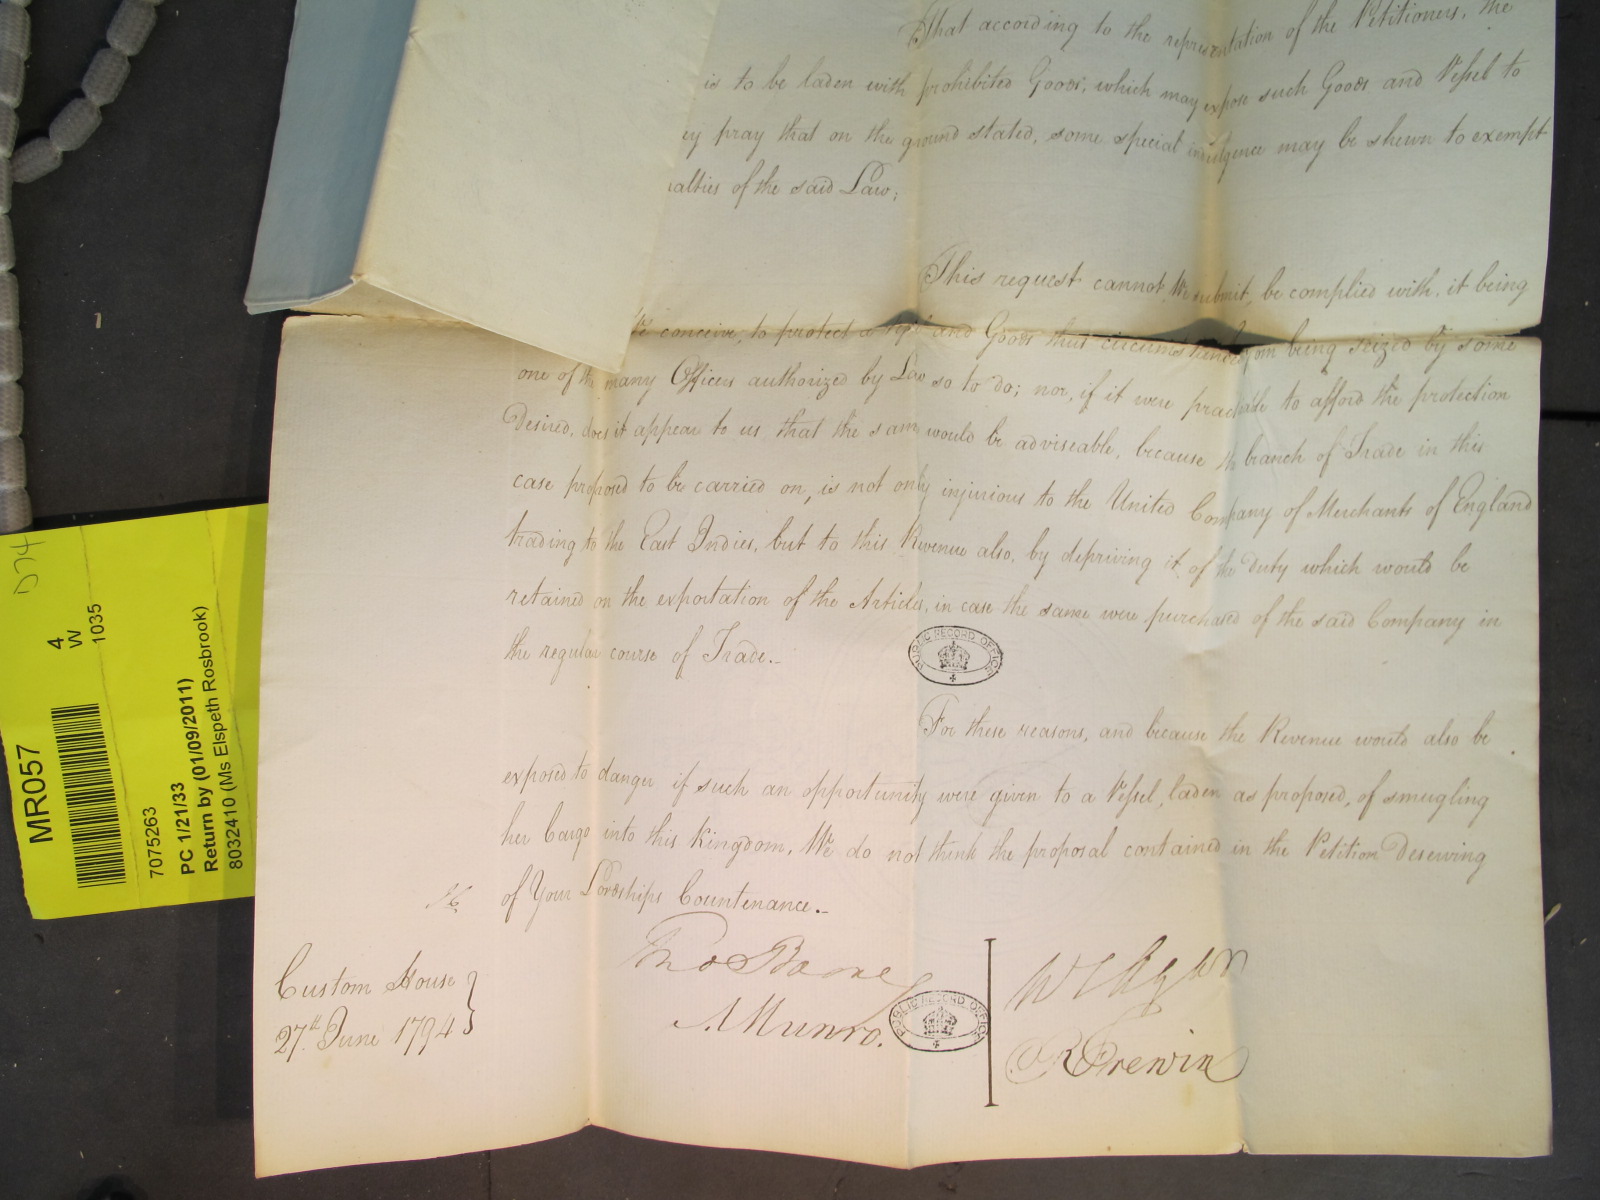 That according to the representation of the Petitioners, the
is to be laden with prohibited Goods, which may expose such Goods and Vessel to
ey pray that on the ground stated, some special indulgence may be shewn to exempt
alties of the said Law;
This request cannot, We submit, be complied with, it being
We conceive, to protect a and Goods thus circumstanced from being seized by some
one of the many Officers authorized by Law so to do; nor, if it were practicable to afford the protection
Desired, does it appear to us that the same would be adviseable, because the branch of Trade in this
case proposed to be carried on, is not only injurious to the United Company of Merchants of England
trading to the East Indies, but to this Revenue also, by depriving it of the Duty which would be
retained on the exportation of the Articles, in case the same were purchased of the said Company in
the regular course of Trade._
PUBLIC RECORD OFFICE
For these reasons, and because the Revenue would also be
exposed to danger if such an opportunity were given to a Vessel, laden as proposed, of smugling
her Cargo into this Kingdom, We do not think the proposal contained in the Petition deserving
of Your Lordships Countenance._
Custom House
27th June 1794
Tho Boone
A Munro.
PUBLIC RECORD OFFICE
R Frewin
D74
MR057
4
W
1035
7075263
PC 1/21/33
Return by (01/09/2011)
8032410 (Ms Elspeth Rosbrook)